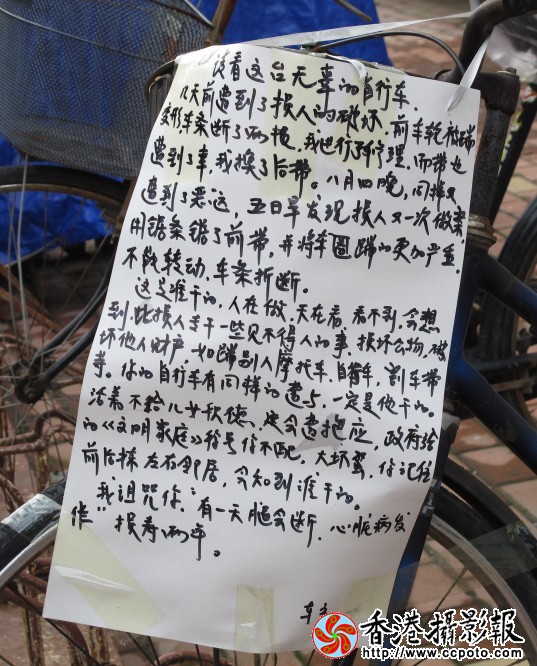 请看这台无辜的自行车.
几天前遭到了损人的破坏.前车轮被踹
变形,车条断了两根,我进行了修理.而带也
遭到了辜,我换了后带。八月四晚,同样又
遭到了恶运,五日早发现损人又一次做案,
用锯条锯了前带,并将车圈踹的更加严重,
不能转动.车条折断。
这是谁干的,人在做,天在看 看不到,会想
到,此损人专干一些见不得人的事.损坏公物,破
坏他人财产,如踹别人摩托车.自行车,割车带
等.你的自行车有同样的遭遇,一定是他干的。
活着不给儿女积德,定会遭抱应,政府给
的《文明家庭》称号你不配,大坏蛋,你记住
前后栋左右邻居,会知到谁干的。
我诅咒你:有一天腿会断.心脏病发
作"损寿两年。
车主
香港攝影報
http://www.ccpoto.com